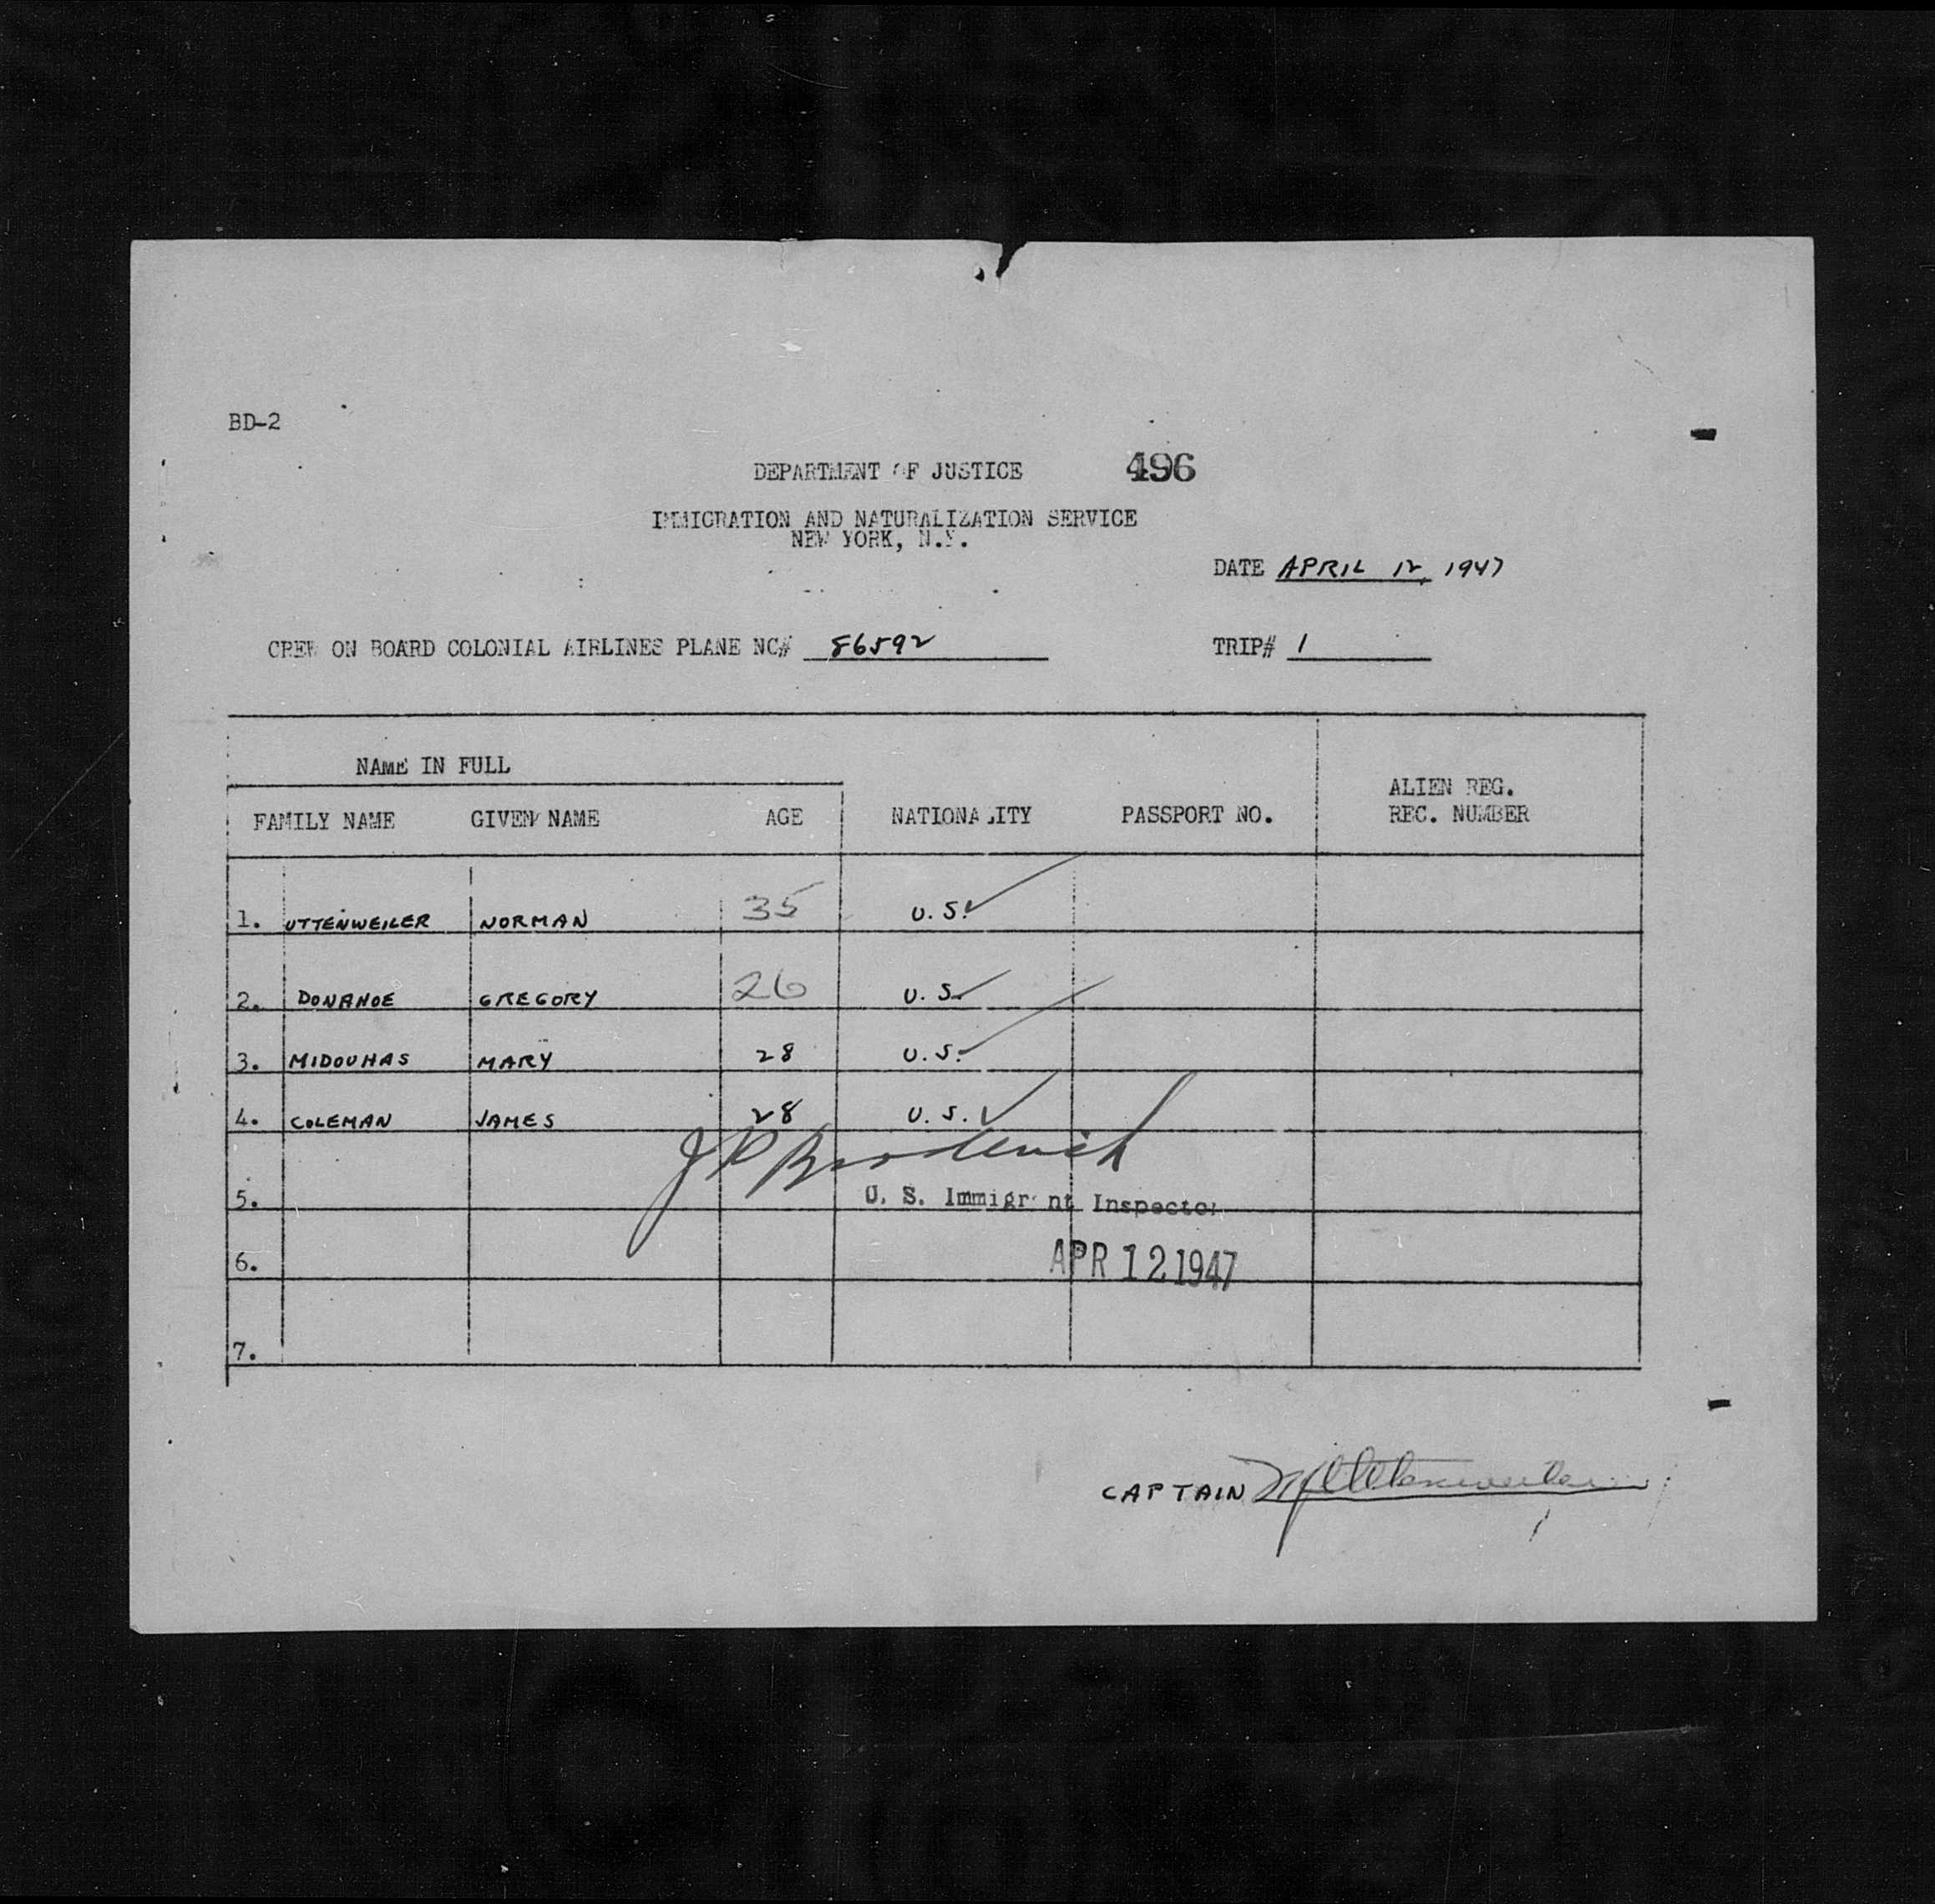 BD-2
DEPARTMENT OF JUSTICE 496
IMMIGRATION AND NATURALIZATION SERVICE
NEW YORK, N.Y.
DATE APRIL 12, 1947
CREW ON BOARD COLONIAL AIRLINES PLANE NC# 86592 TRIP# 1
NAME IN FULL
FAMILY NAME GIVEN NAME AGE NATIONALITY PASSPORT NO. ALIEN REG. REC. NUMBER
1. UTTENWEILER NORMAN 35 U.S.
2. DONAHOE GREGORY 26 U.S.
3. MIDOUHAS MARY 28 U.S.
4. COLEMAN JAMES 28 U.S.
J P Broderick
5. U. S. Immigrant Inspector
6. APR 12 1947
7.
CAPTAIN Uttenweiler